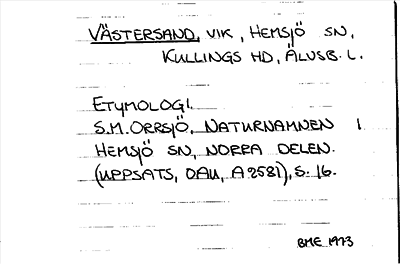 VÄSTERSAND, VIK, HEMSJÖ SN,
KULLINGS HD, ÄLVSB. L.
ETYMOLOGI.
S.M. ORRSJÖ, NATURNAMNEN I
HEMSJÖ SN, NORRA DELEN.
(UPPSATS, DAU, A 2581), S. 16.
BME 1973